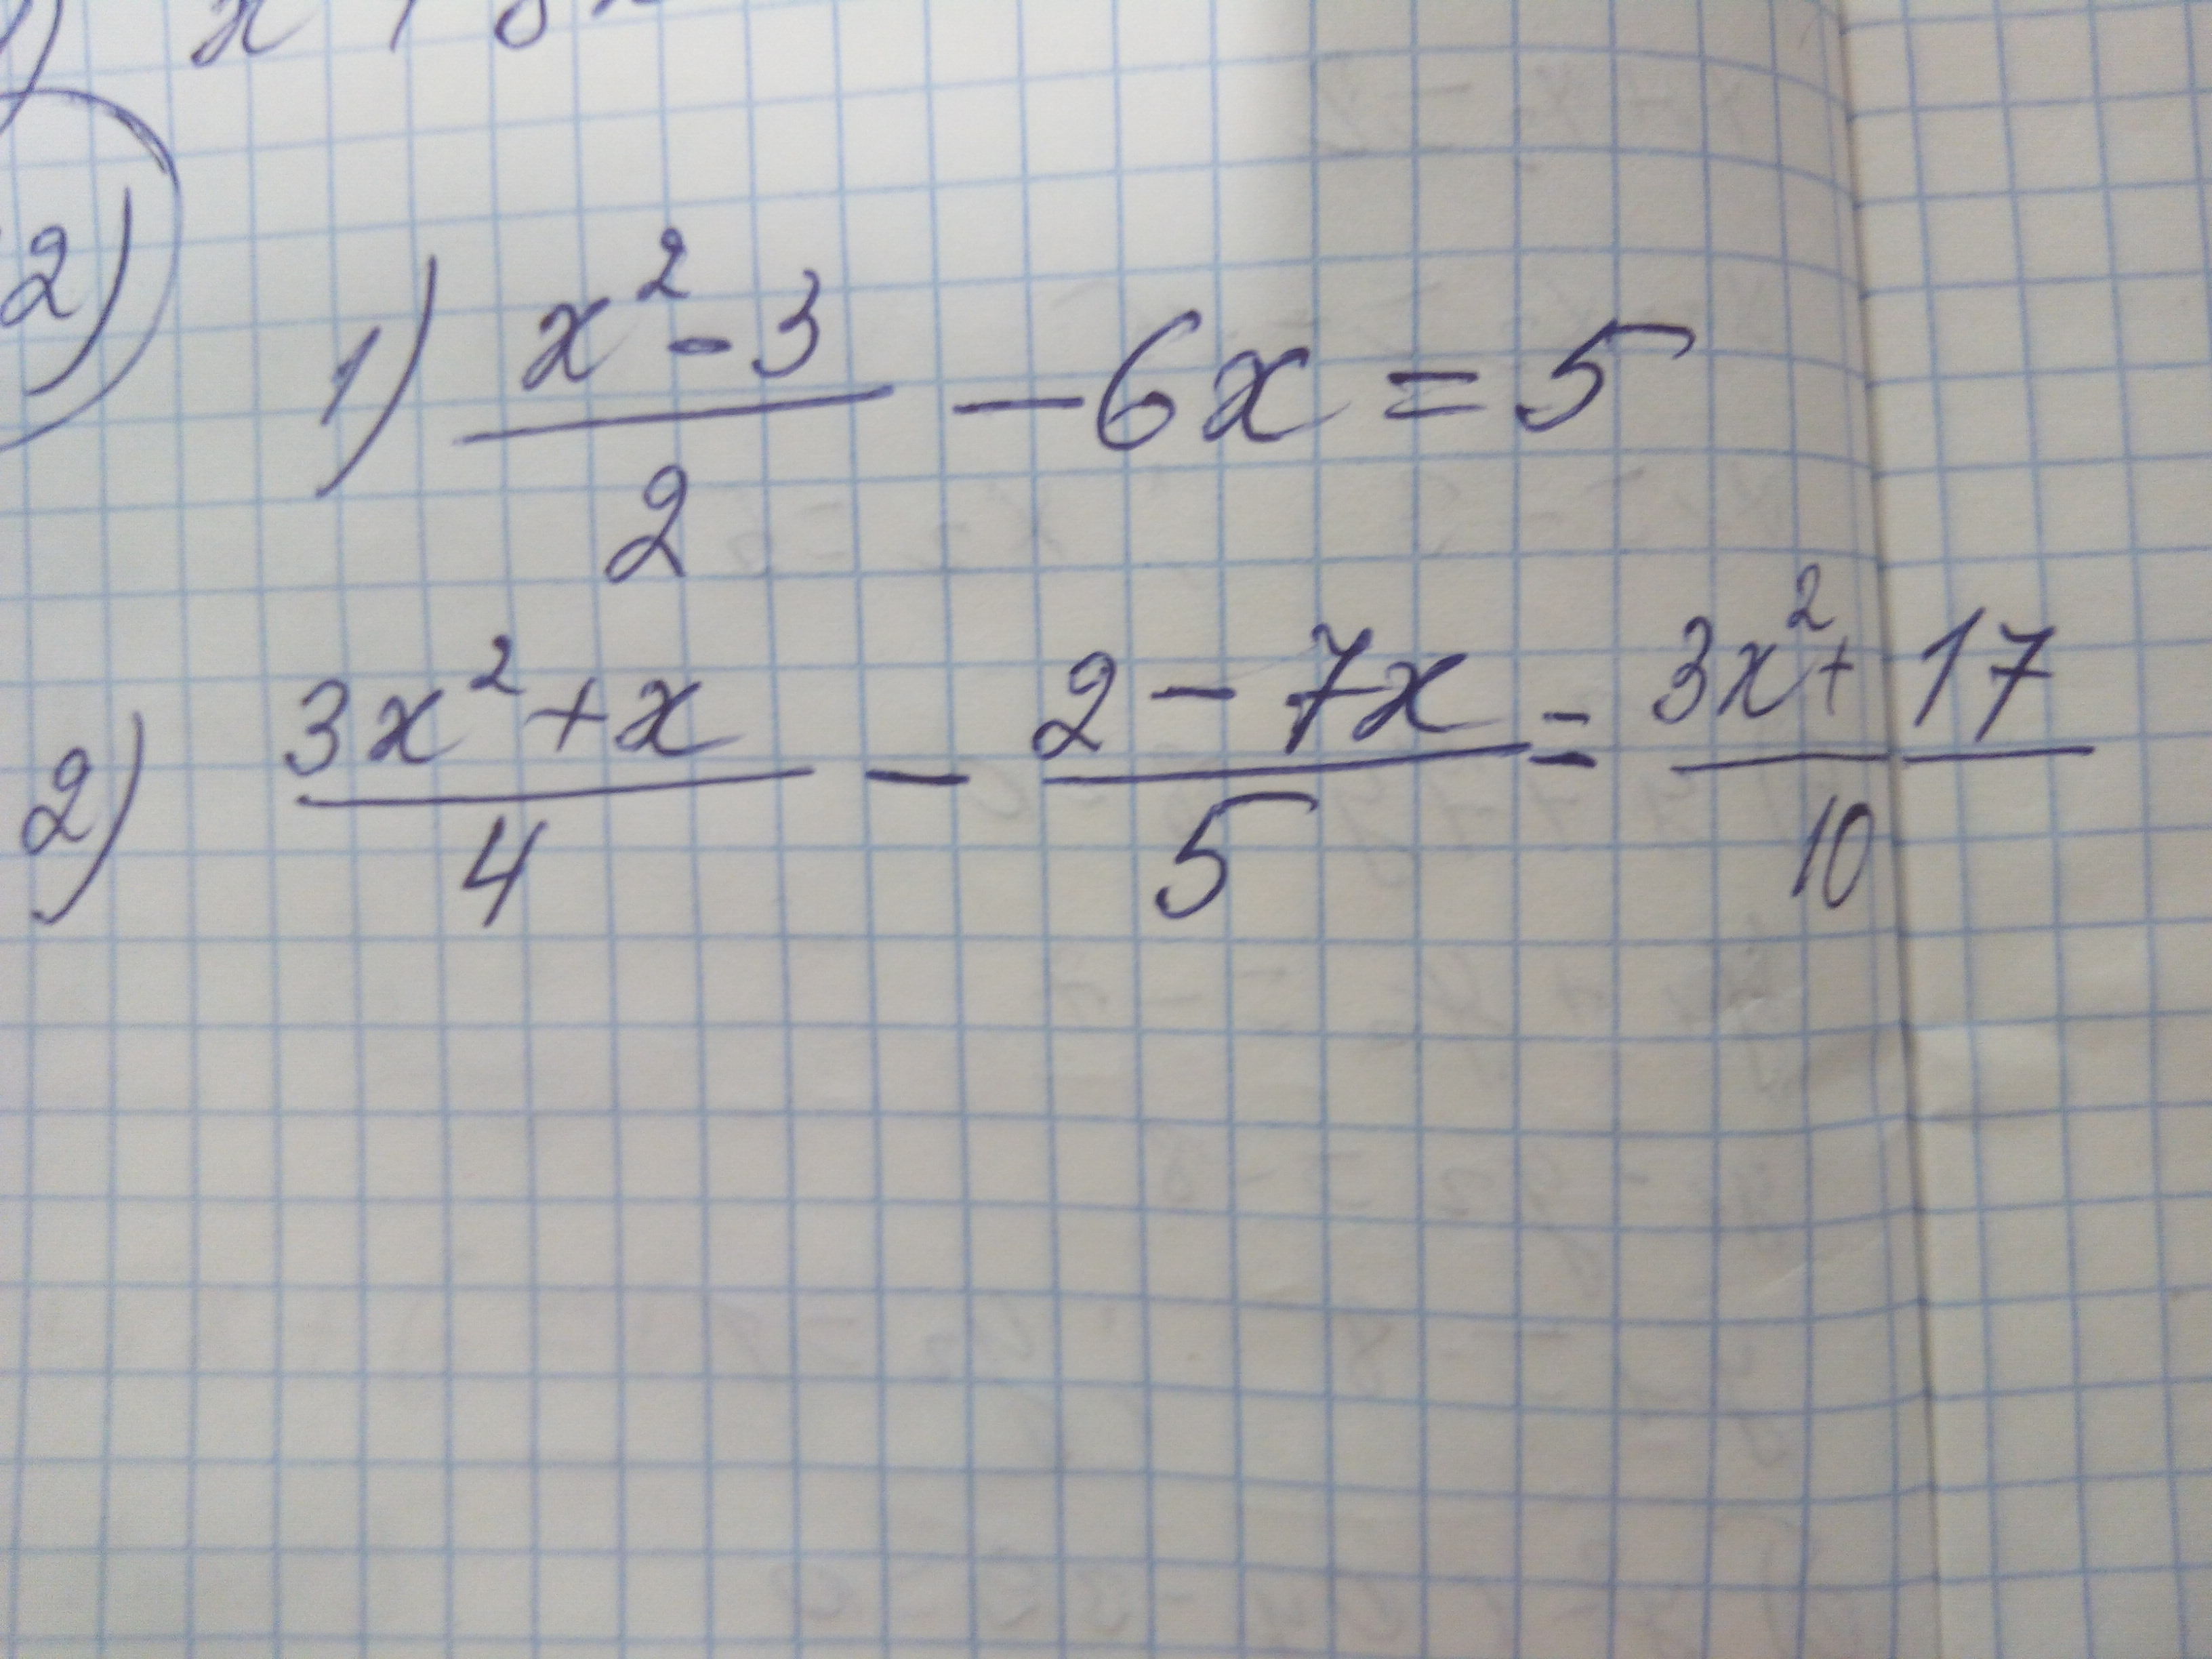 2)
1) x² - 3 / 2 - 6x = 5
2) 3x² + x / 4 - 2 - 7x / 5 = 3x² + 17 / 10